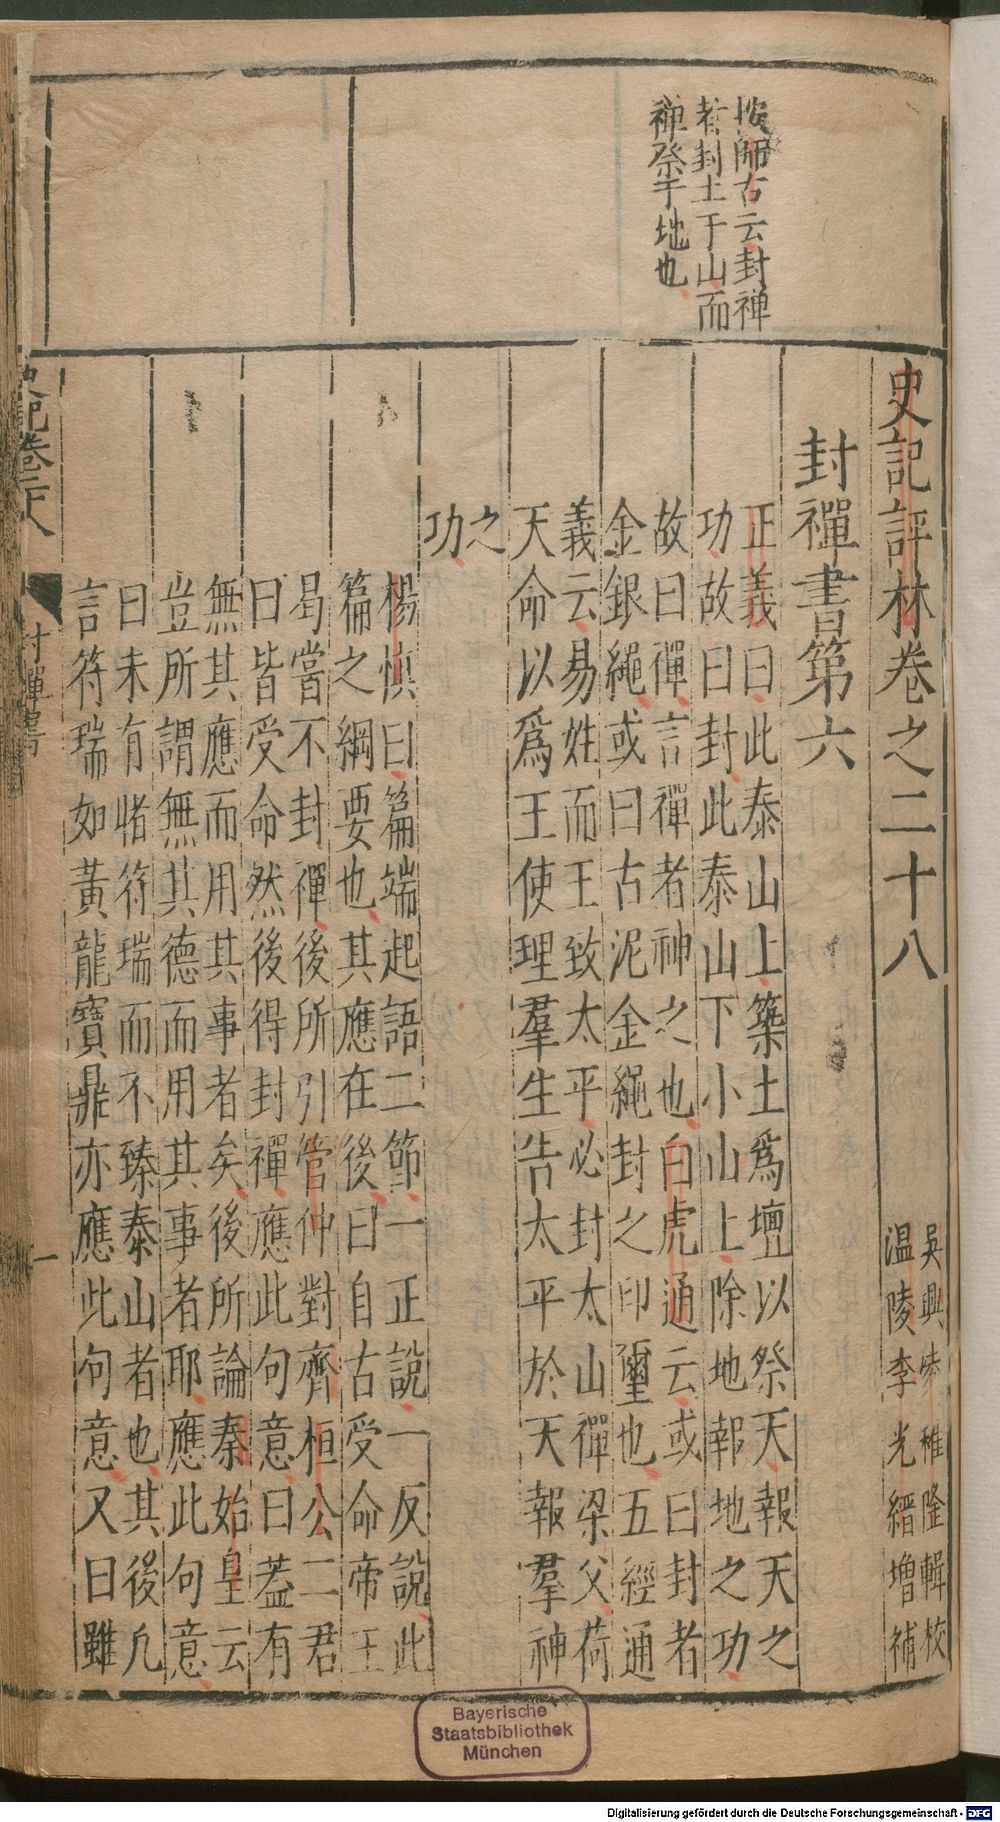 史記評林卷之二十八
吳興凌稚隆輯校
溫陵李光縉增補
封禪書第六
按師古云封禪
者封土于山而
禪祭于地也
正義曰此泰山上築土爲壇以祭天報天之
功故曰封此泰山下小山上除地報地之功
故曰禪言禪者神之也白虎通云或曰封者
金銀繩或曰古泥金繩封之印璽也五經通
義云易姓而王致太平必封太山禪梁父荷
天命以爲王使理羣生告太平於天報羣神
之
功
楊慎曰篇端起語二節一正說一反說此
篇之綱要也其應在後曰自古受命帝王
曷嘗不封禪後所引管仲對齊桓公二君
曰皆受命然後得封禪應此句意曰葢有
無其應而用其事者矣後所論秦始皇云
豈所謂無其德而用其事者耶應此句意
曰未有睹符瑞而不臻泰山者也其後凢
言符瑞如黃龍寶鼎亦應此句意又曰雖
史記卷二十八
封禪書
一
Bayerische
Staatsbibliothek
München
Digitalisierung gefördert durch die Deutsche Forschungsgemeinschaft - DFG